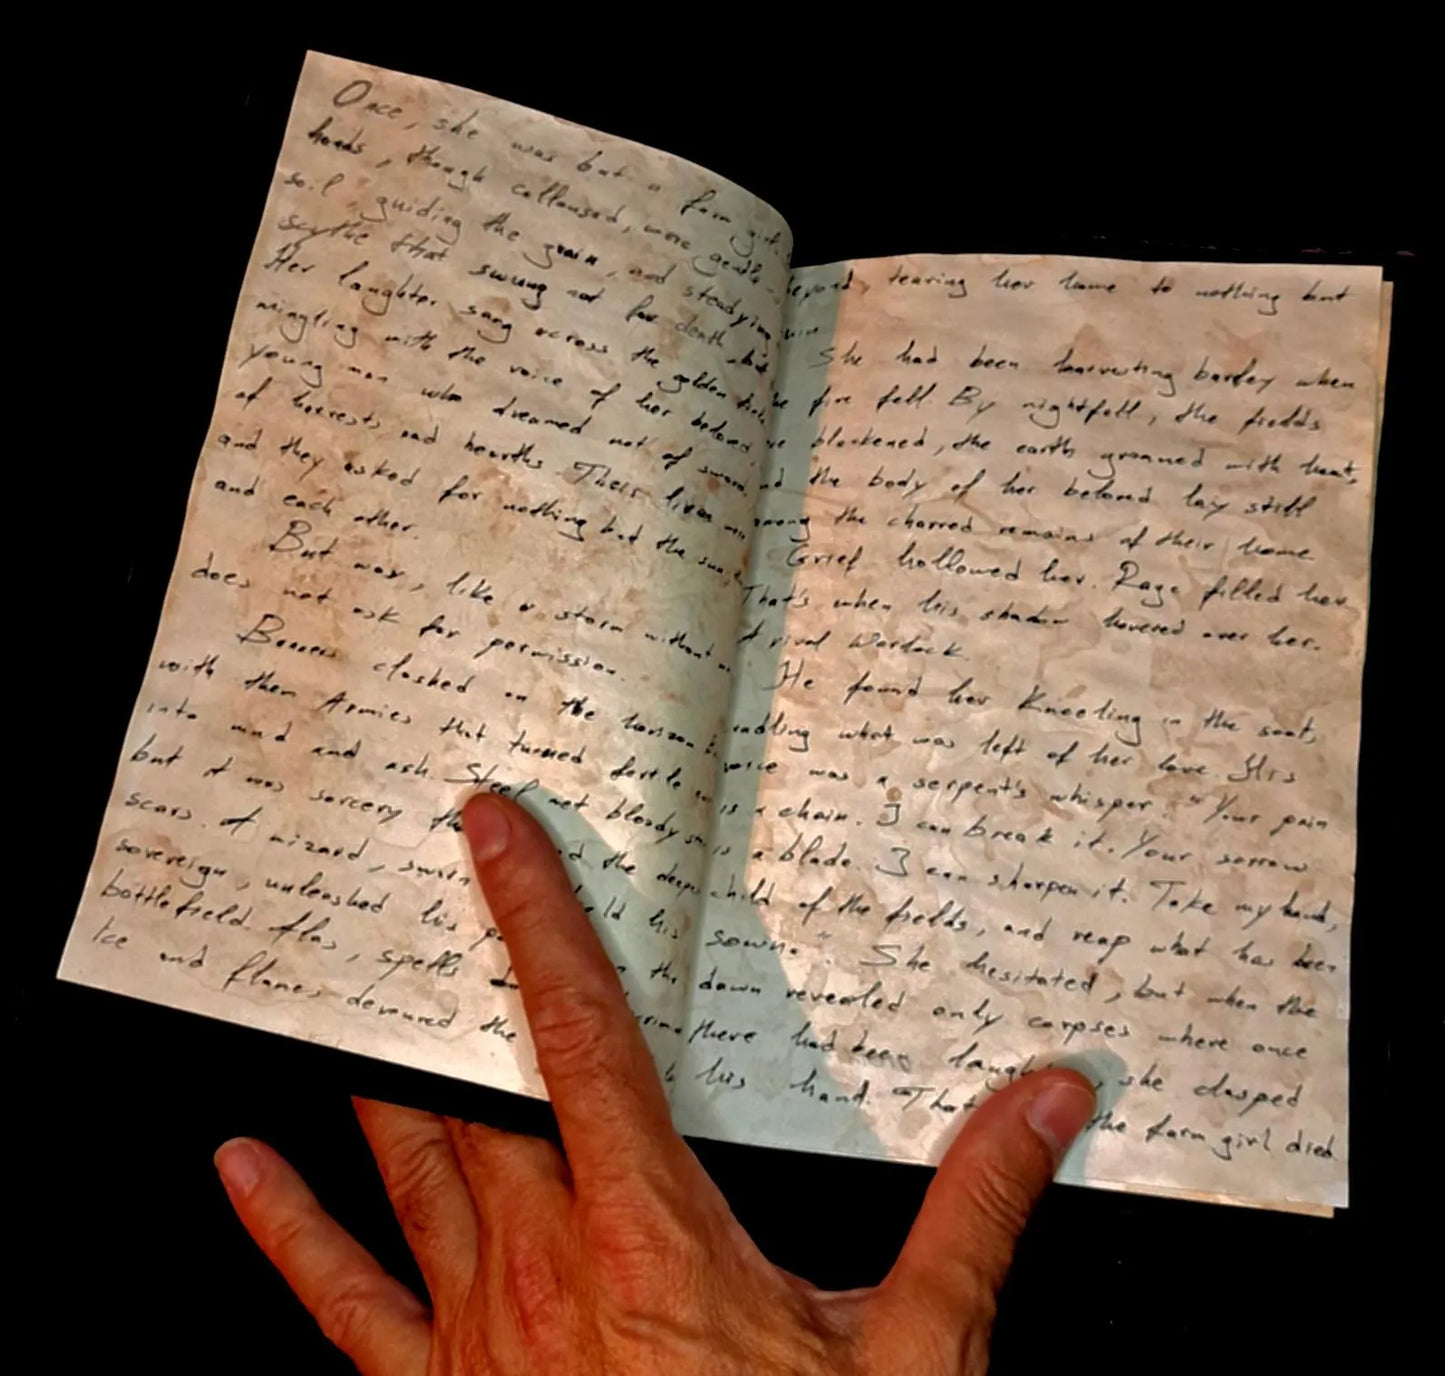 Once, she was but a farm girl.
hands, though calloused, were gentle
soil guiding the grain, and steadying
scythe that swung not for death but
Her laughter sang across the golden
mingling with the voice of her beloved
young man who dreamed not of sword
of harvests and hearths. Their lives were
and they asked for nothing but the sun,
and each other.
But war, like a storm without
does not ask for permission.
Banners clashed on the horizon
with them Armies that turned fertile
into mud and ash. Steel met bloody
but it was sorcery
scars. A wizard, sworn the deeper
sovereign, unleashed his his
battlefield. spells the
Ice and flames devoured the
beyond, tearing her home to nothing but
ruin
She had been harvesting barley when
the fire fell. By nightfall, the fields
were blackened, the earth groaned with heat,
and the body of her beloved lay still
among the charred remains of their home.
Grief hollowed her. Rage filled her.
That's when his shadow hovered over her.
A rival Warlock.
He found her Kneeling in the soot,
cradling what was left of her love. His
voice was a serpent's whisper. "Your pain
is a chain. I can break it. Your sorrow
is a blade. I can sharpen it. Take my hand,
child of the fields, and reap what has been
sown." She hesitated, but when the
dawn revealed only corpses where once
there had been she clasped
his hand. the farm girl died.